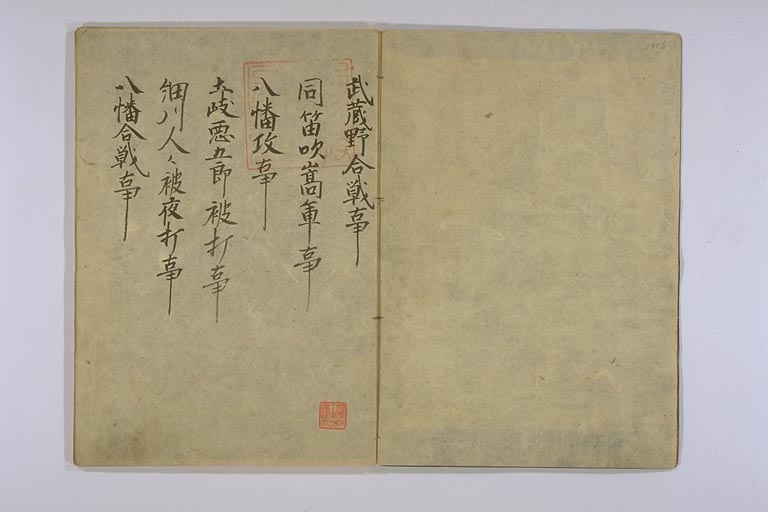 武蔵野合戦事
同笛吹嵩軍事
八幡攻事
土岐悪五郎被打事
細川人々被夜打事
八幡合戦事